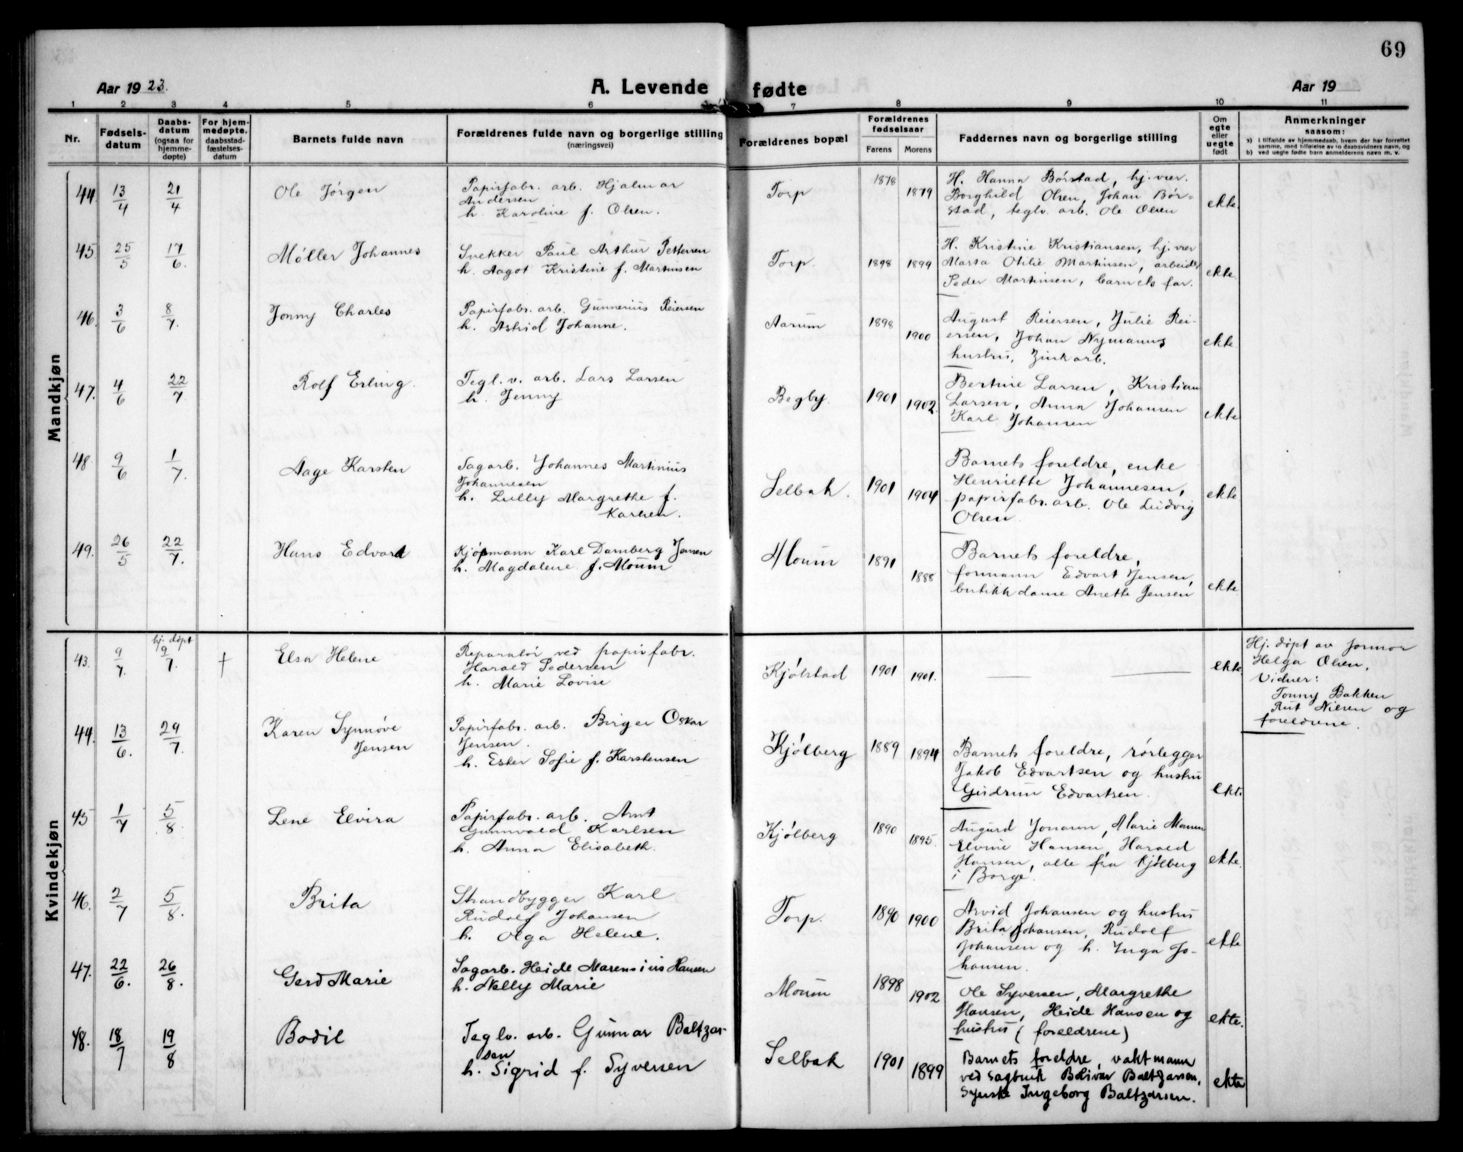 69
Aar 1923.
A. Levende fødte
Aar 19
1 2 3 4 5 6 7 8 9 10 11
Nr.
Fødsels-
datum
Daabs-
datum
(ogsaa for
hjemme-
døpte)
For hjem-
medøpte.
daabsstad-
fæstelses-
datum
Barnets fulde navn
Forældrenes fulde navn og borgerlige stilling
(næringsvei)
Forældrenes bopæl
Forældrenes
fødselsaar
Farens Morens
Faddernes navn og borgerlige stilling
Om
egte
eller
uegte
født
Anmerkninger
saasom:
Mandkjøn
44 13/4 21/4
Ole Jørgen
Papirfabr. arb. Hjalmar
Andersen
h. Karoline f. Olsen.
Torp
1878 1879
H. Hanna Børstad, hj. vær.
Borghild Olsen, Johan Bør-
stad, teglv. arb. Ole Olsen
ekte.
45. 25/5 17/6.
Møller Johannes
Snekker Paul Arthur Pettersen
h. Aagot Kristine f. Martinsen
Torp
1898 1899
H. Kristine Kristiansen, hj. vær
Marta Otilie Martinsen, arbeider
Peder Martinsen, barnets far.
ekte.
46. 3/6 8/7.
Jonny Charles
Papirfabr. arb. Gunnerius Reiersen
h. Astrid Johanne.
Aarum
1898 1900
August Reiersen, Julie Rei-
ersen, Johan Nymanns
hustru, Zink arb.
ekte
47. 4/6 22/7
Rolf Erling.
Tegl. v. arb. Lars Larsen
h. Jenny
Begby.
1901 1902.
Bertine Larsen, Kristian
Larsen, Anna Johansen
Karl Johansen
ekte
48 9/6 1/7.
Aage Karsten
Sagarb. Johannes Martinius
Johannesen
h. Lully Margrethe f.
Karlsen.
Selbak.
1901 1904
Barnets foreldre, enke
Henriette Johannesen,
papirfabr. arb. Ole Ludvig
Olsen.
ekte
49. 26/5 22/7.
Hans Edvard
Kjøpmann Karl Damberg Jensen
h. Magdalene f. Moum
Moum
1891 1888
Barnets foreldre,
formann Edvart Jensen,
butikkdame Anette Jensen
ekte
Kvindekjøn
43. 9/7. hj. døpt 9/7. †
Elsa Helene
Reparatør ved papirfabr.
Harald Pedersen
h. Marie Lovise
Kjølstad
1901 1901.
ekte
Hj. døpt av jormor
Helga Olsen.
Vidner:
Tonny Bakken
Rut Nilsen og
foreldrene.
44. 13/6. 29/7.
Karen Synnøve
Jensen
Papirfabr. arb. Birger Oskar
Jensen.
h. Ester Sofie f. Karstensen
Kjølberg
1889 1894
Barnets foreldre, rørlegger
Jakob Edvartsen og hustru
Gudrun Edvartsen.
ekte
45 1/7 5/8.
Lene Elvira
Papirfabr. arb. Arnt
Gunnvald Karlsen
h. Anna Elisabeth.
Kjølberg
1890 1895.
Elvine Hansen, Harald
Hansen, alle fra Kjølberg
i Borge.
ekte.
46. 2/7 5/8.
Brita
Strandbygger Karl
Rudolf Johansen
h. Olga Helene.
Torp.
1890 1900
Arvid Johansen og hustru
Brita Johansen, Rudolf
Johansen og h. Inga Jo-
hansen.
ekte
47. 22/6. 26/8.
Gerd Marie
Sagarb. Heide Marensius Hansen
h. Nelly Marie
Moum
1898 1902
Ole Syversen, Margrethe
Hansen, Heide Hansen og
hustru (foreldrene)
ekte.
48. 18/7 19/8
Bodil
Teglv. arb. Gunnar Baltzar-
sen
h. Sigrid f. Syversen
Selbak
1901 1899
Barnets foreldre, vaktmann
ved sagbruk Bolivar Baltzarsen,
Ingeborg Baltzarsen.
ekte